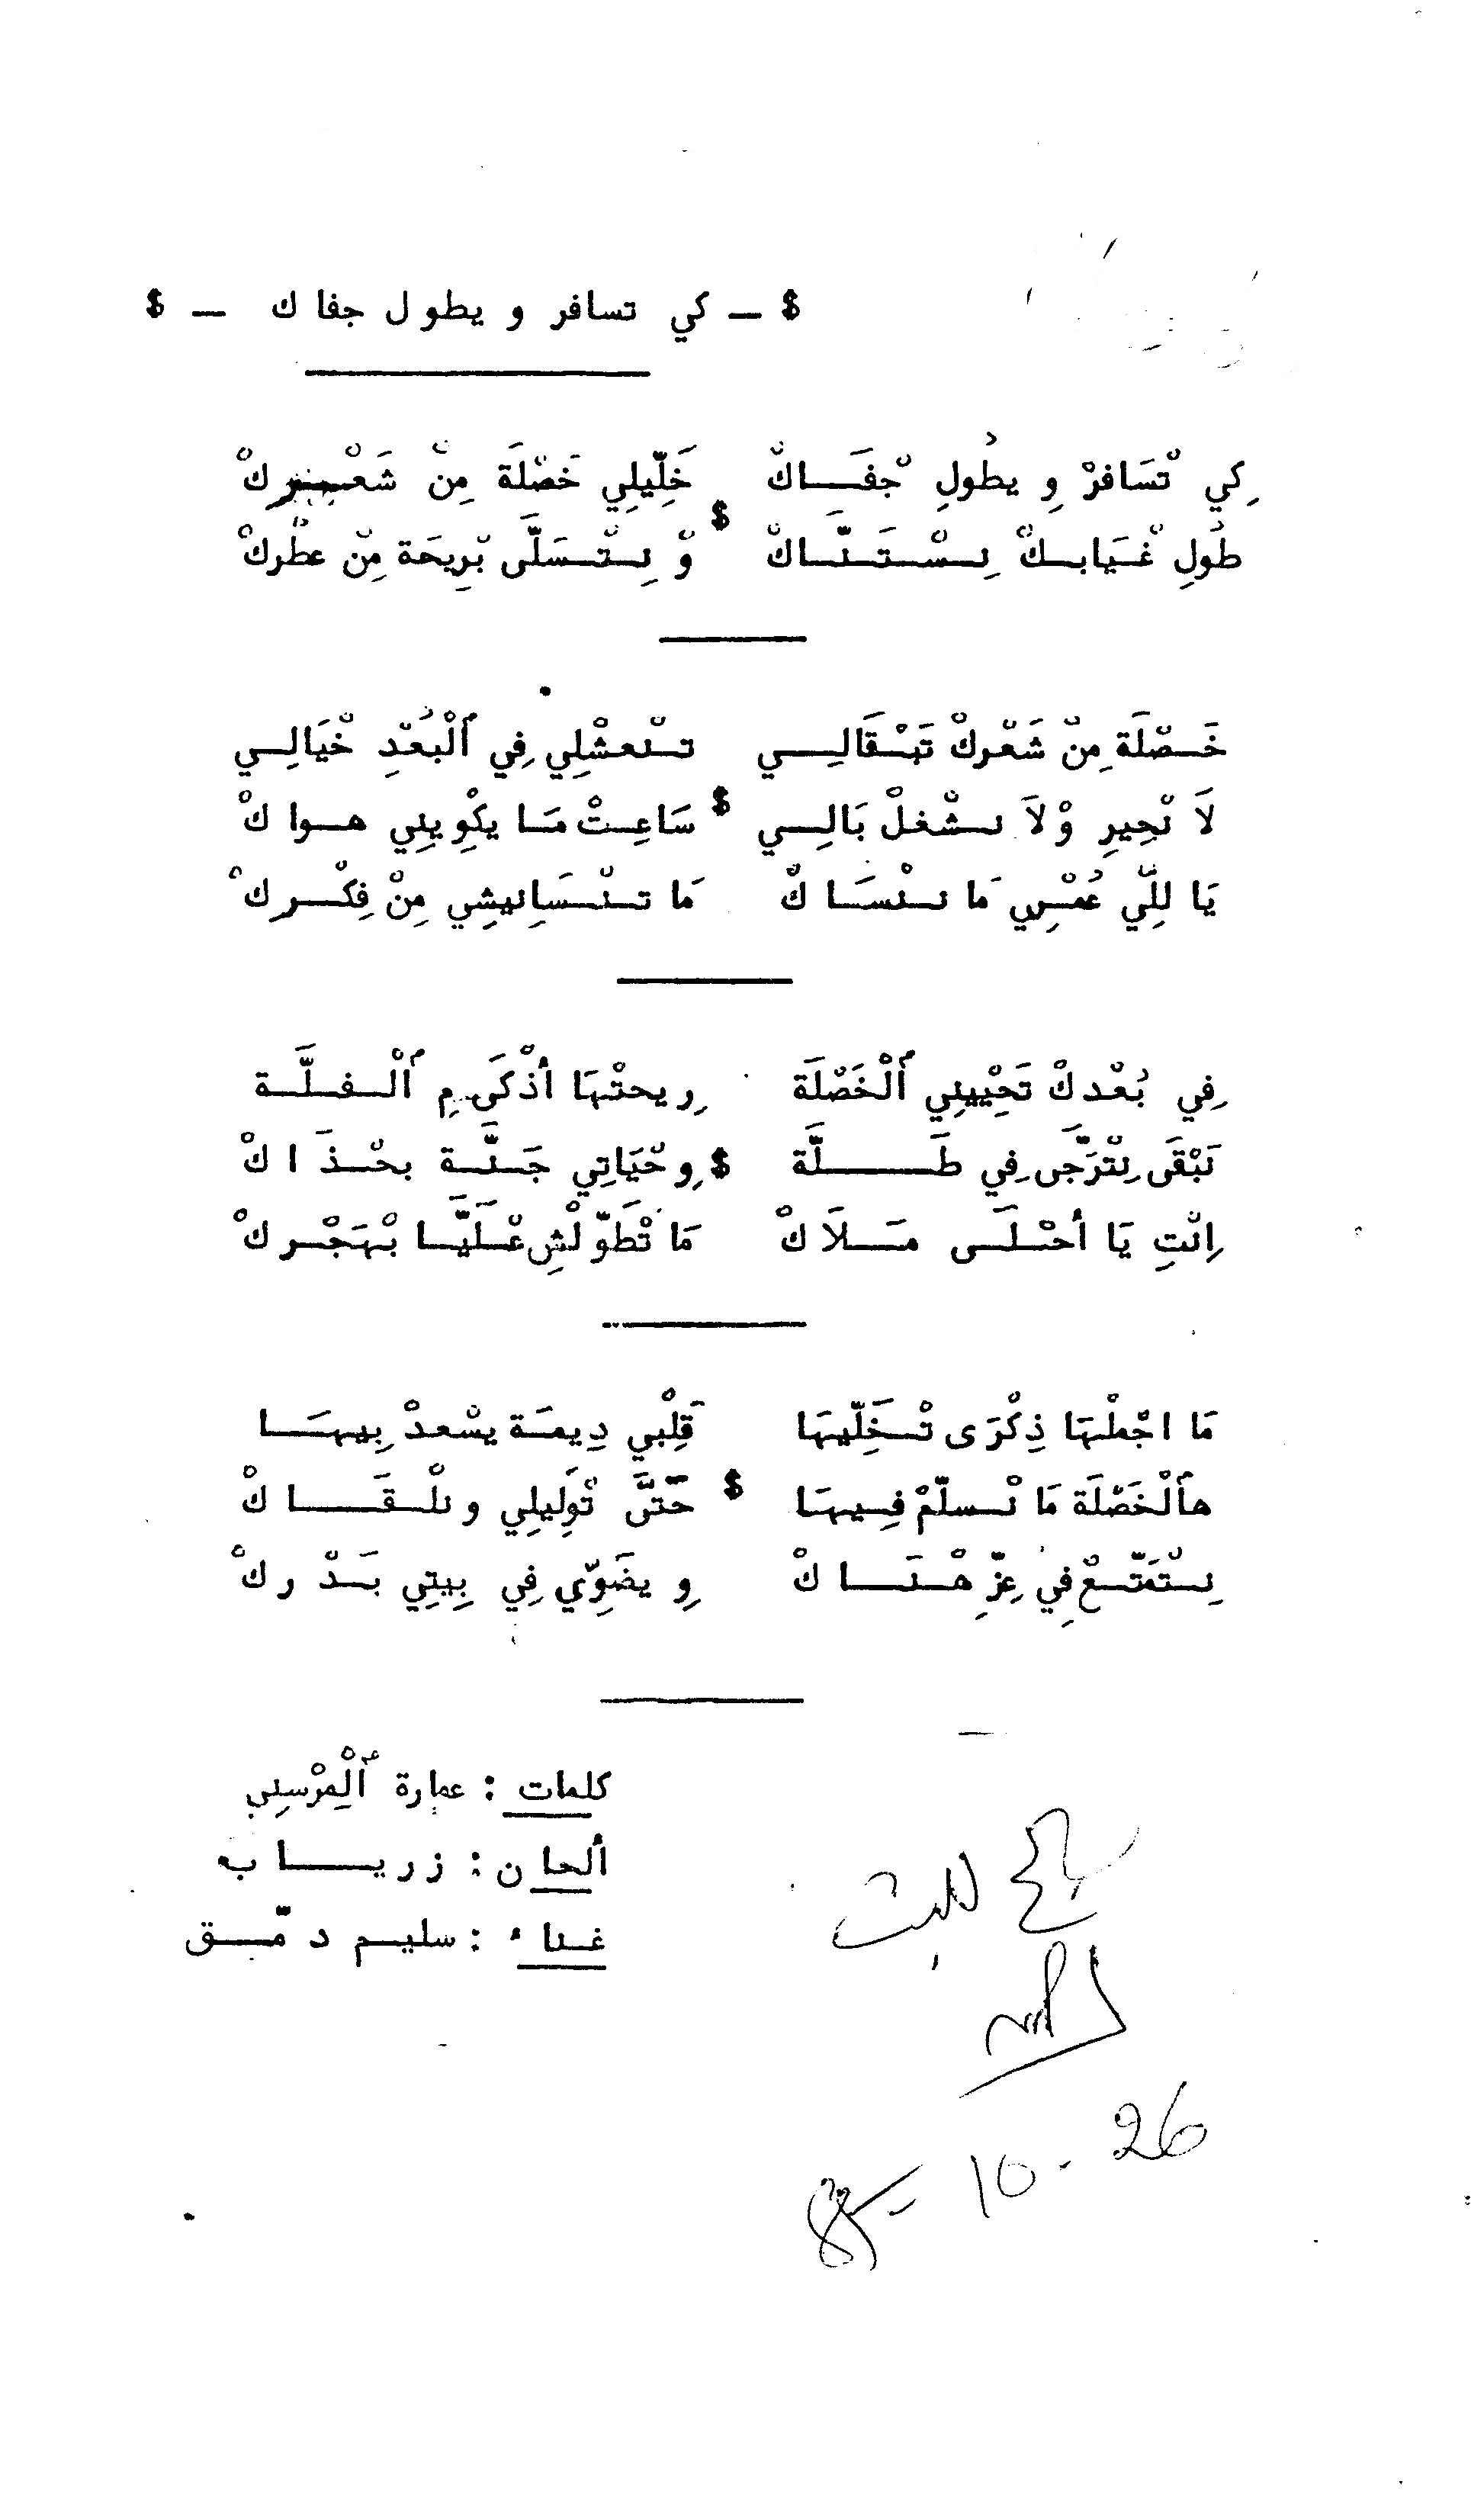 $ ـ كي تسافر و يطول جفاك ـ $
كِي تْسَافرْ وِ يطُولِ جْفَــاكْ خَلِّيلِي خَصْلَة مِنْ شَعْــرِكْ
$
طُولِ غْيَابــكْ نِسْتَنَّــاكْ وْ نِتْسَلَّى بْرِيحَة مِنْ عطْركْ
خَصْلَة مِنْ شَعْركْ تَبْقَالِــي تـنْعشْلِي فِي ٱلْبُعْدِ خْيَالِــي
لَا نْحِيرِ وْلَا نشْغلْ بَالِــي $ سَاعِتْ مَا يكْوِينِي هــواكْ
يَا للِّي عُمْرِي مَا ننْسَــاكْ مَا تـنْسَانِيشِي مِنْ فِكْــرِكْ
فِي بُعْدكْ تَحْيِينِي ٱلْخَصْلَة رِيحتْهَا أذْكَى مِ ٱلْفـلَّــة
نَبْقَى نِتْرَجَّى فِي طَــلَّة $ وِحْيَاتِي جَنَّــة بحْــذَاكْ
اِنْتِ يَا أحْلَــى مَــلَاكْ مَا تْطَوّلْشِ عْلَيَّــا بْهَجْــركْ
مَا اجْملْهَا ذِكْرَى تْخَلِّيهَا قَلْبِي دِيمَــة يسْعدْ بِيهَــا
هَٱلْخَصْلَة مَا نْسلّمْ فِــيهَا $ حَتَّى تْوَلِيلِي ونلْقَــاكْ
نِسْتْمَتّــعْ فِي عِزِّ هْنَــاكْ وِ يضَوِّي فِي بِيتِي بَــدْركْ
كلمات : عمارة ٱلْمرْسنِي
ألحان : زريــاب
غناء : سليم دمّــق
26 - 10 -